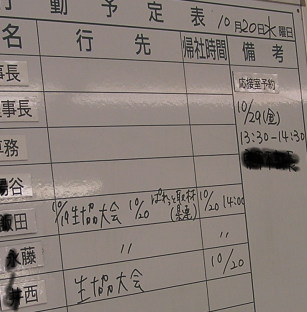 行動予定表 10月20日水曜日
名 行先 帰社時間 備考
事長 応接室予約
理事長 10/29(金)
専務 13:30-14:30
湯谷
飯田 10/19生協大会 10/20 ぱれっと取材(県庁) 10/20 14:00
藤 〃 〃
西 生協大会 10/20